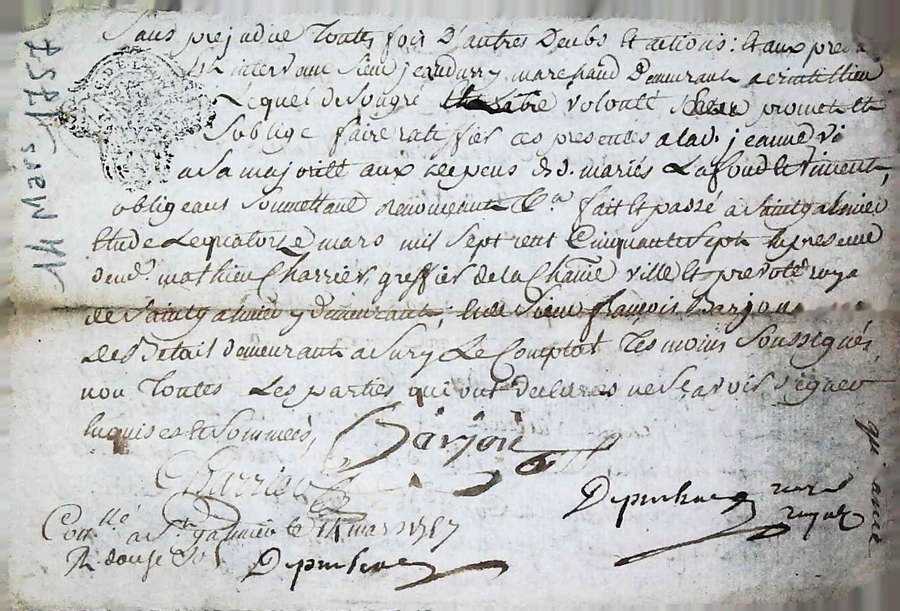 Sans prejudice Toutes fois D'autres Deubs et actions : et aux pre
est intervenu Sieur jean marchand Demeurant a
Lequel de Son gré volonté promet et
S'oblige faire ratiffier ces presentes a lad. jeanne
a Sa majorité aux depens desd. mariés Lafond et Vincent,
obligeant Soumettant Renonceant &a fait et passé a Saintgalmier
Etude Le quatorze mars mil Sept cent Cinquante Sept En presence
de me. mathieu Charrier, greffier de la ville et prevoté roya
de Saintgalmier y demeurant, et de Sieur françois Barjon
de Betail demeurant a Sury Le Comptal Tesmoins Soussignés,
non Toutes Les parties qui ont declaré ne Scavoir Signer
Enquises et Sommées,
Barjon
Charrier
nore
royal
Conllé a St galmier le 14 mars 1757
R. douze S
14 Mars 1757